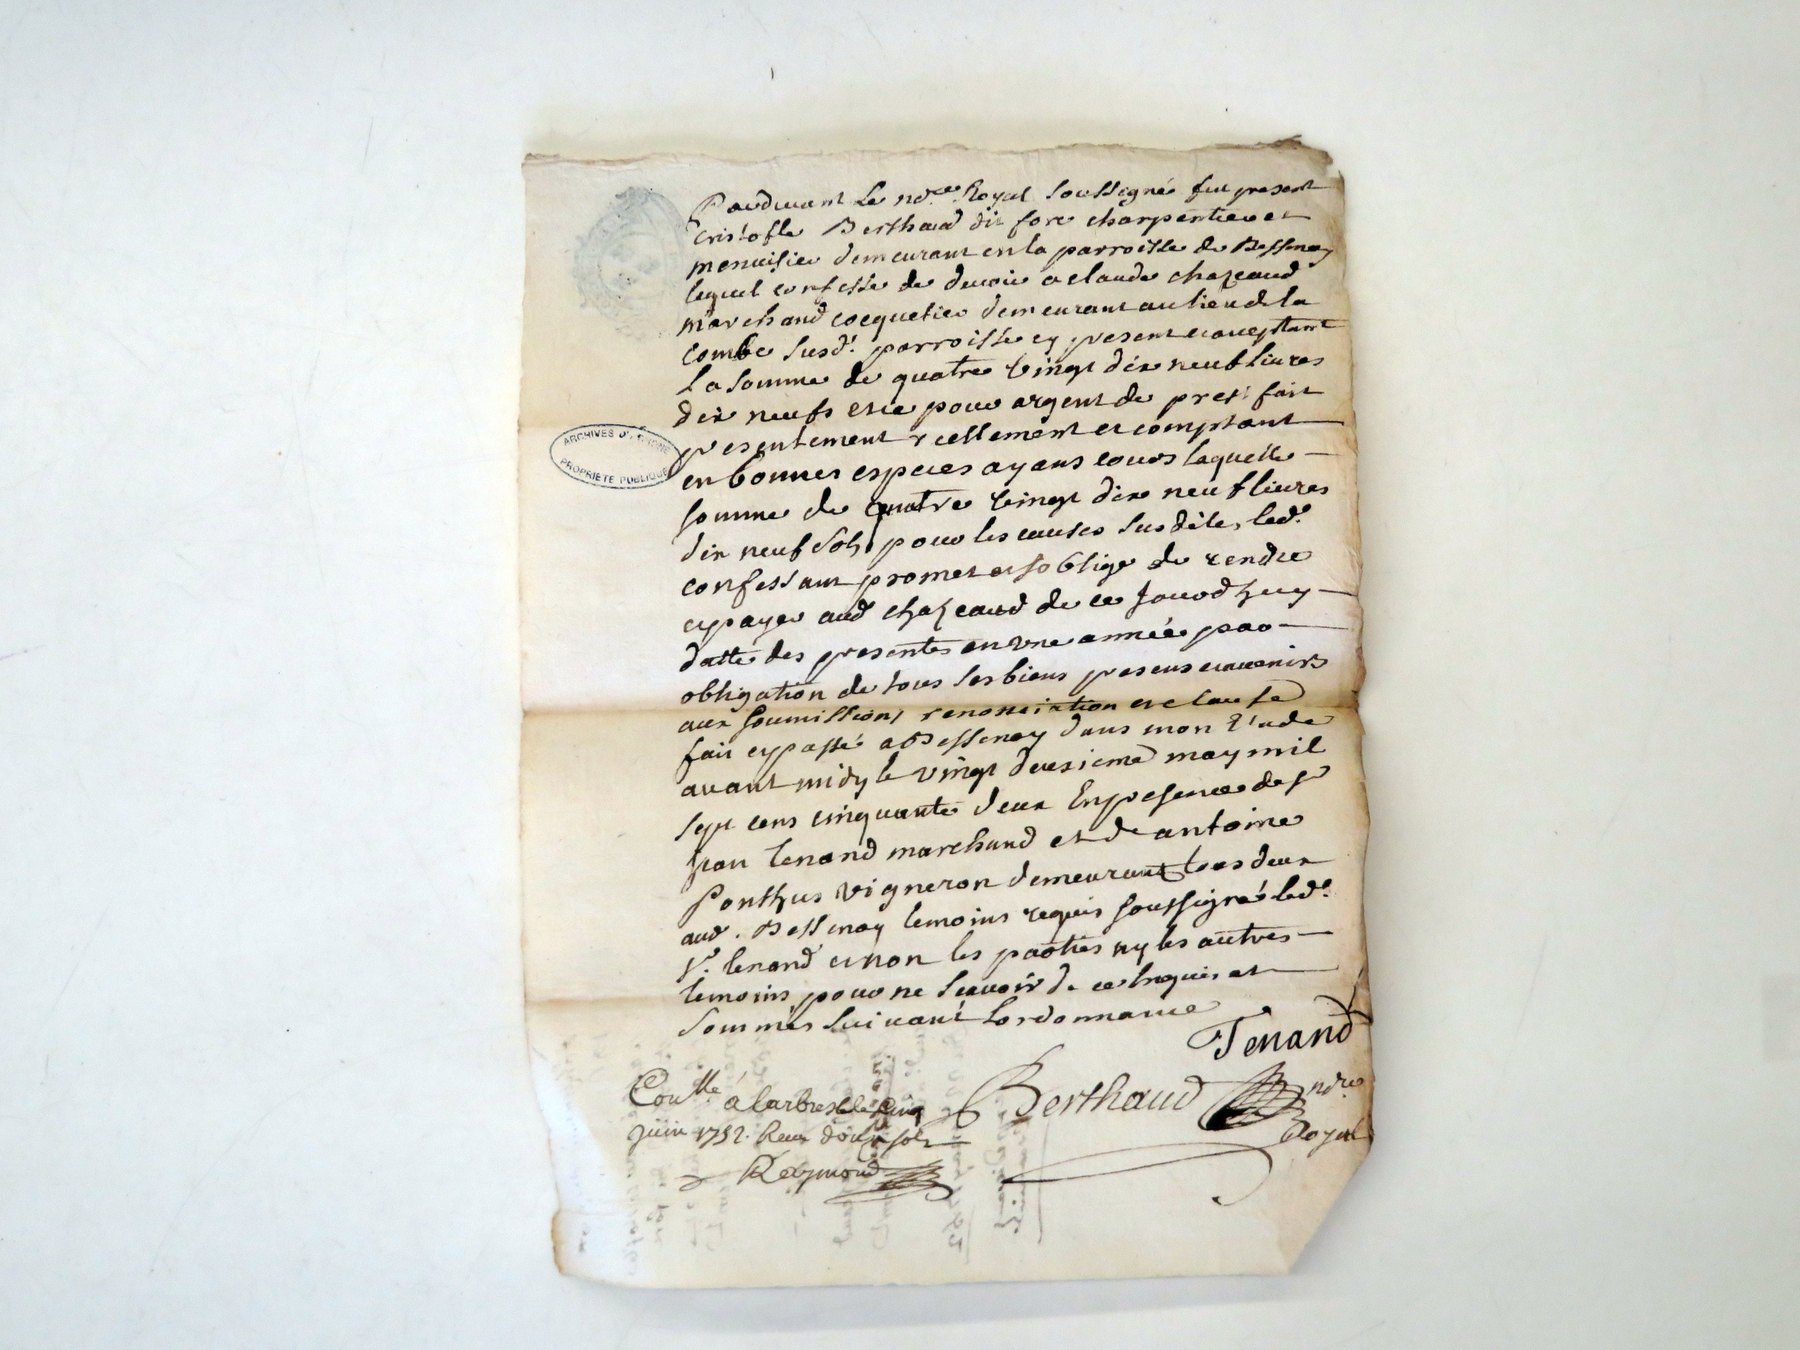 Pardevant le no.re Royal soussigné fut present
Cristofle Berthaud dit fore charpentier et
menuisier demeurant en la parroisse de Bessenay
lequel confesse de devoir a claude chazeaud
marchand cocquetier demeurant au lieu de la
combe susd.e parroisse cy present et acceptant
la somme de quatre vingt dix neuf livres
dix neufs et ce pour argent de prest fait
presentement reellement et comptant
en bonnes especes ayans cours laquelle
somme de quatre vingt dix neuf livres
dix neuf sols pour les causes susdites led.t
confessant promet et soblige de rendre
et payer aud chazeaud de ce jourdhuy
datte des presentes en une année par
obligation de tous ses biens presens et avenirs
aux soumissions renonciation et clause
fait et passé a Bessenay dans mon Etude
avant midy le vingt deuxieme may mil
sept cens cinquante deux En presence de sr
jean tenand marchand et de antoine
Ponthus vigneron demeurant tous deux
aud. Bessenay temoins requis soussigné led.t
sr. tenand et non les parties ny les autres
temoins pour ne scavoir de ce enquis et
sommés suivant Lordonnance
Tenand
Berthaud no.re
Royal
Con.lle a Larbresle le cinq
juin 1752. Receu douze sols
Reymond
ARCHIVES DU RHONE
PROPRIETE PUBLIQUE